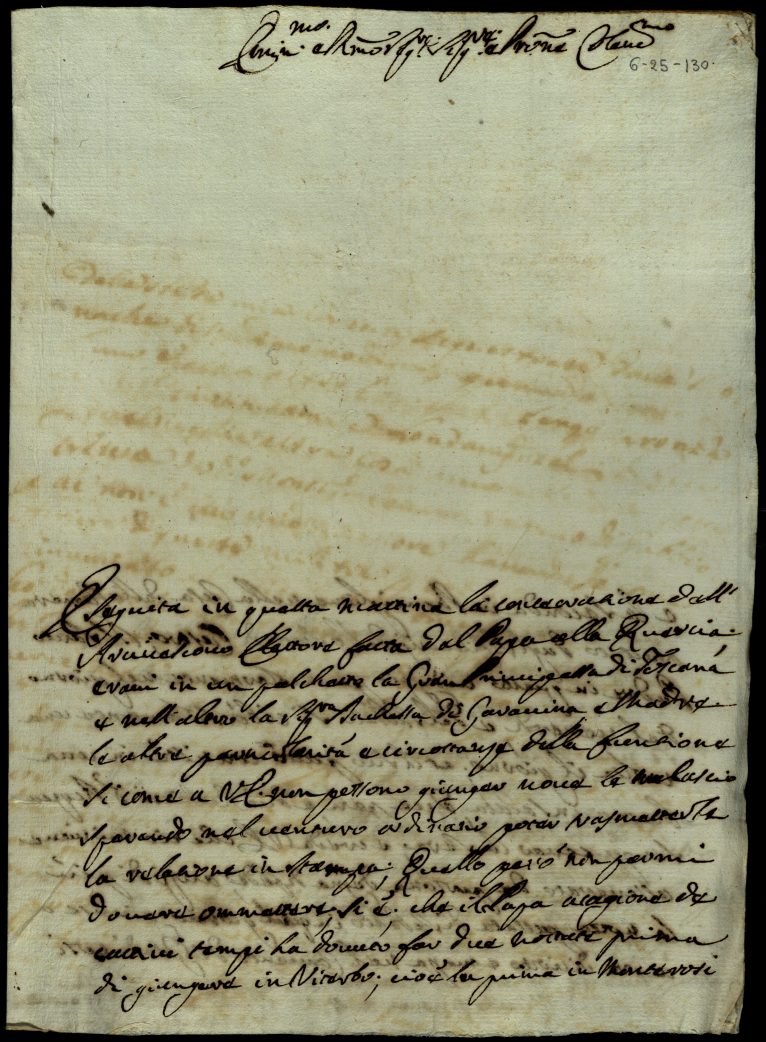 Emin.mo e Rmo Sig.re Sig.re e Prone Colend.mo
6-25-130.
Seguita in questa mattina la consacrazione dell'
Arcivescovo Elettore fatta dal Papa alla Quercia:
erani in un palchetto la Gran Principessa di Toscana
e nell'altro la Sig.ra Duchessa di Gravina e Madre
le altre particolarità e circostanze della funzione
si come a V.E. non possono giunger nove le tralascio
sperando nel venturo ordinario poter trasmetterle
la relazione in stampa; Quello però non parmi
dovere ommettere, si è, che il Papa a cagione de
cattivi tempi ha dovuto far due nottate prima
di giungere in Viterbo; cioè la prima in Monterosi